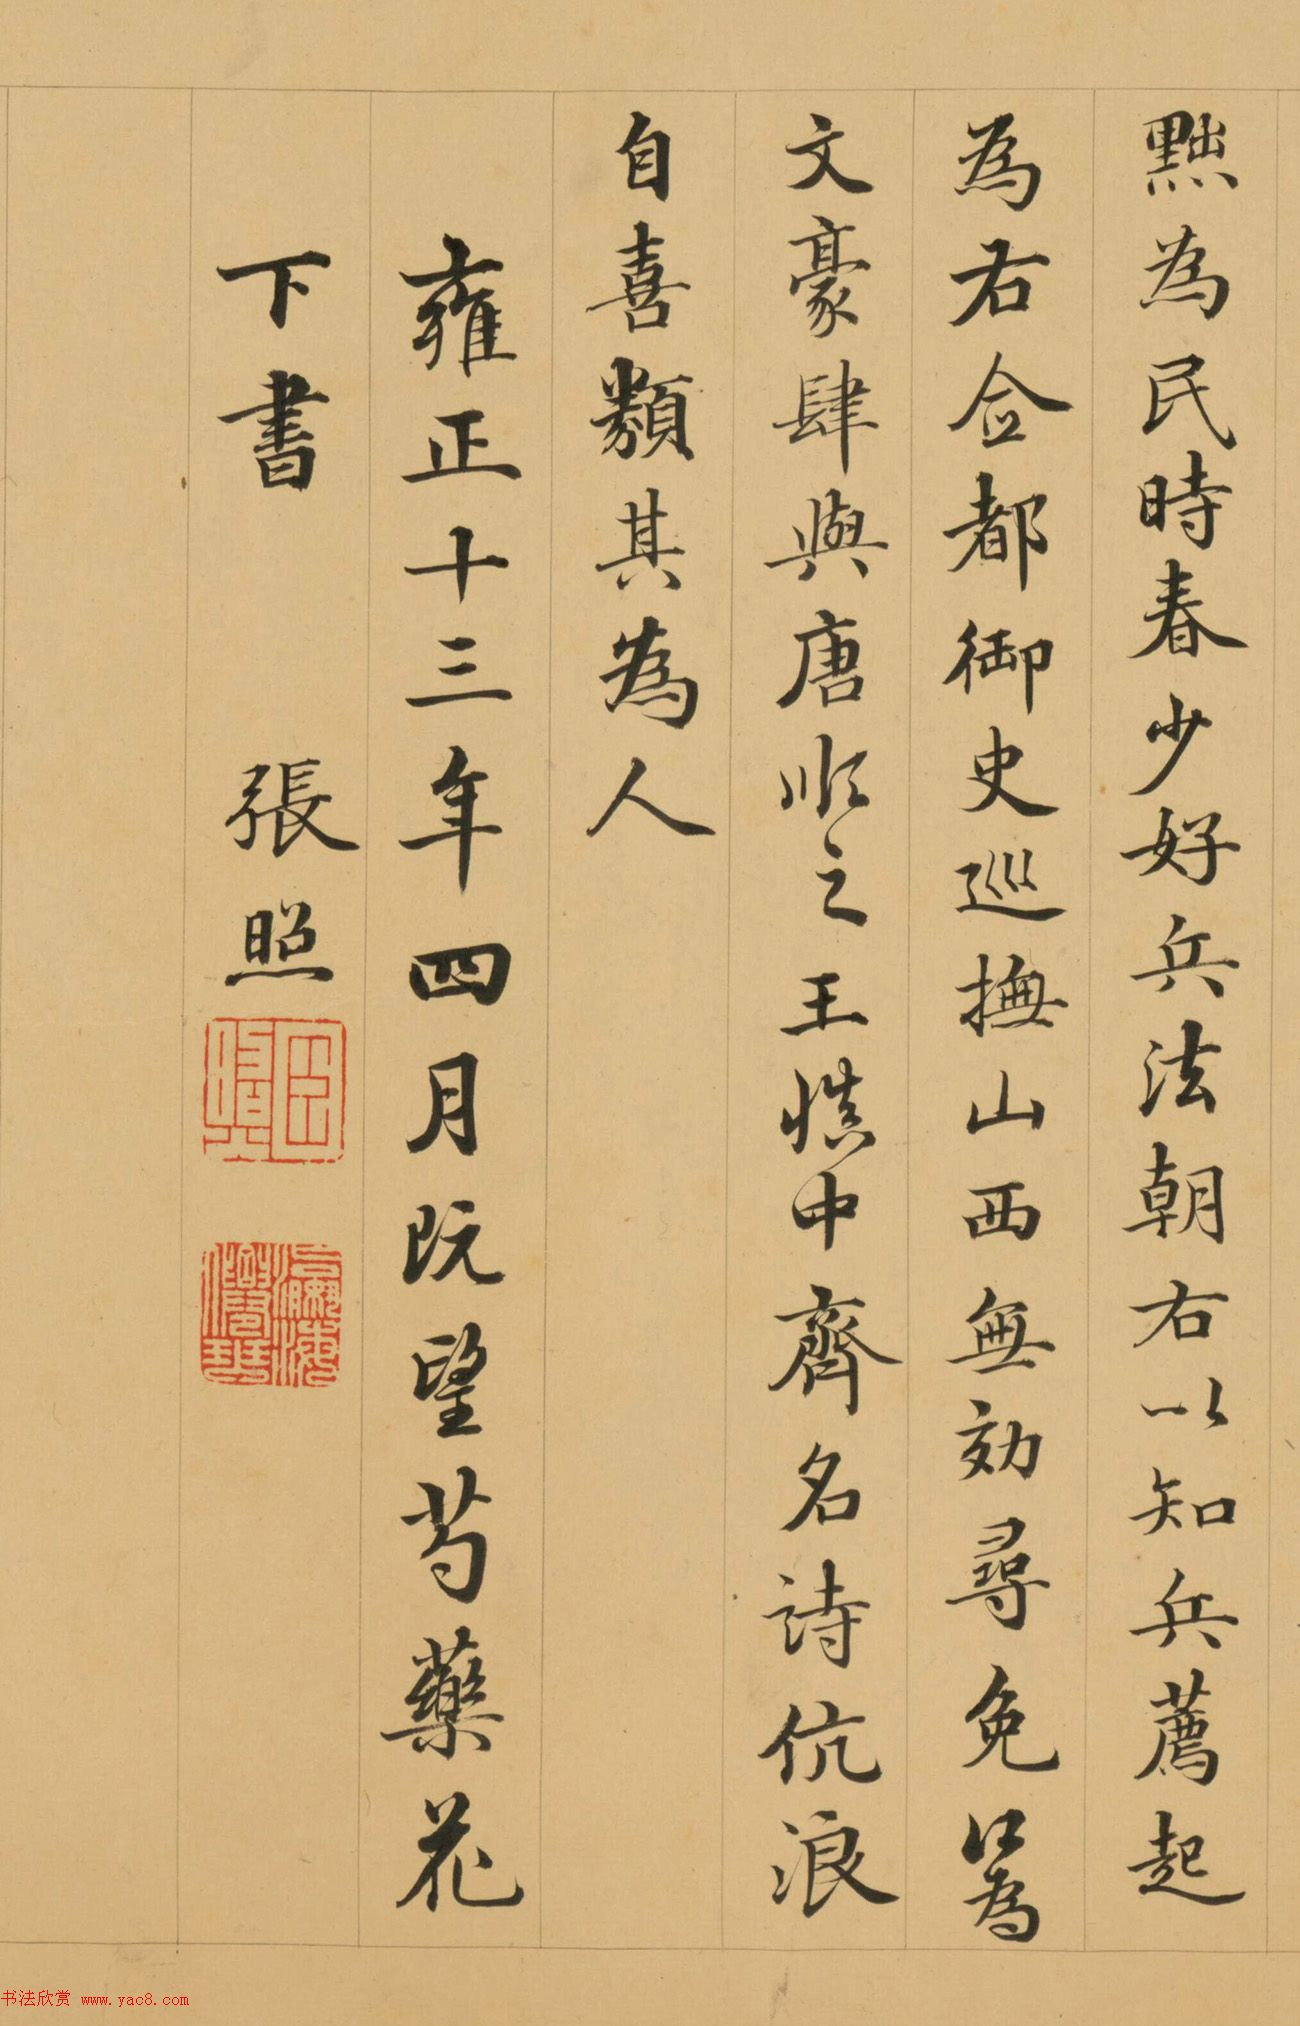 黜為民時春少好兵法朝右以知兵薦起
為右僉都御史巡撫山西無効尋免口為
文豪肆與唐順之王慎中齊名詩伉浪
自喜類其為人
雍正十三年四月既望芍藥花
下書 張照
书法欣赏 www.yac8.com